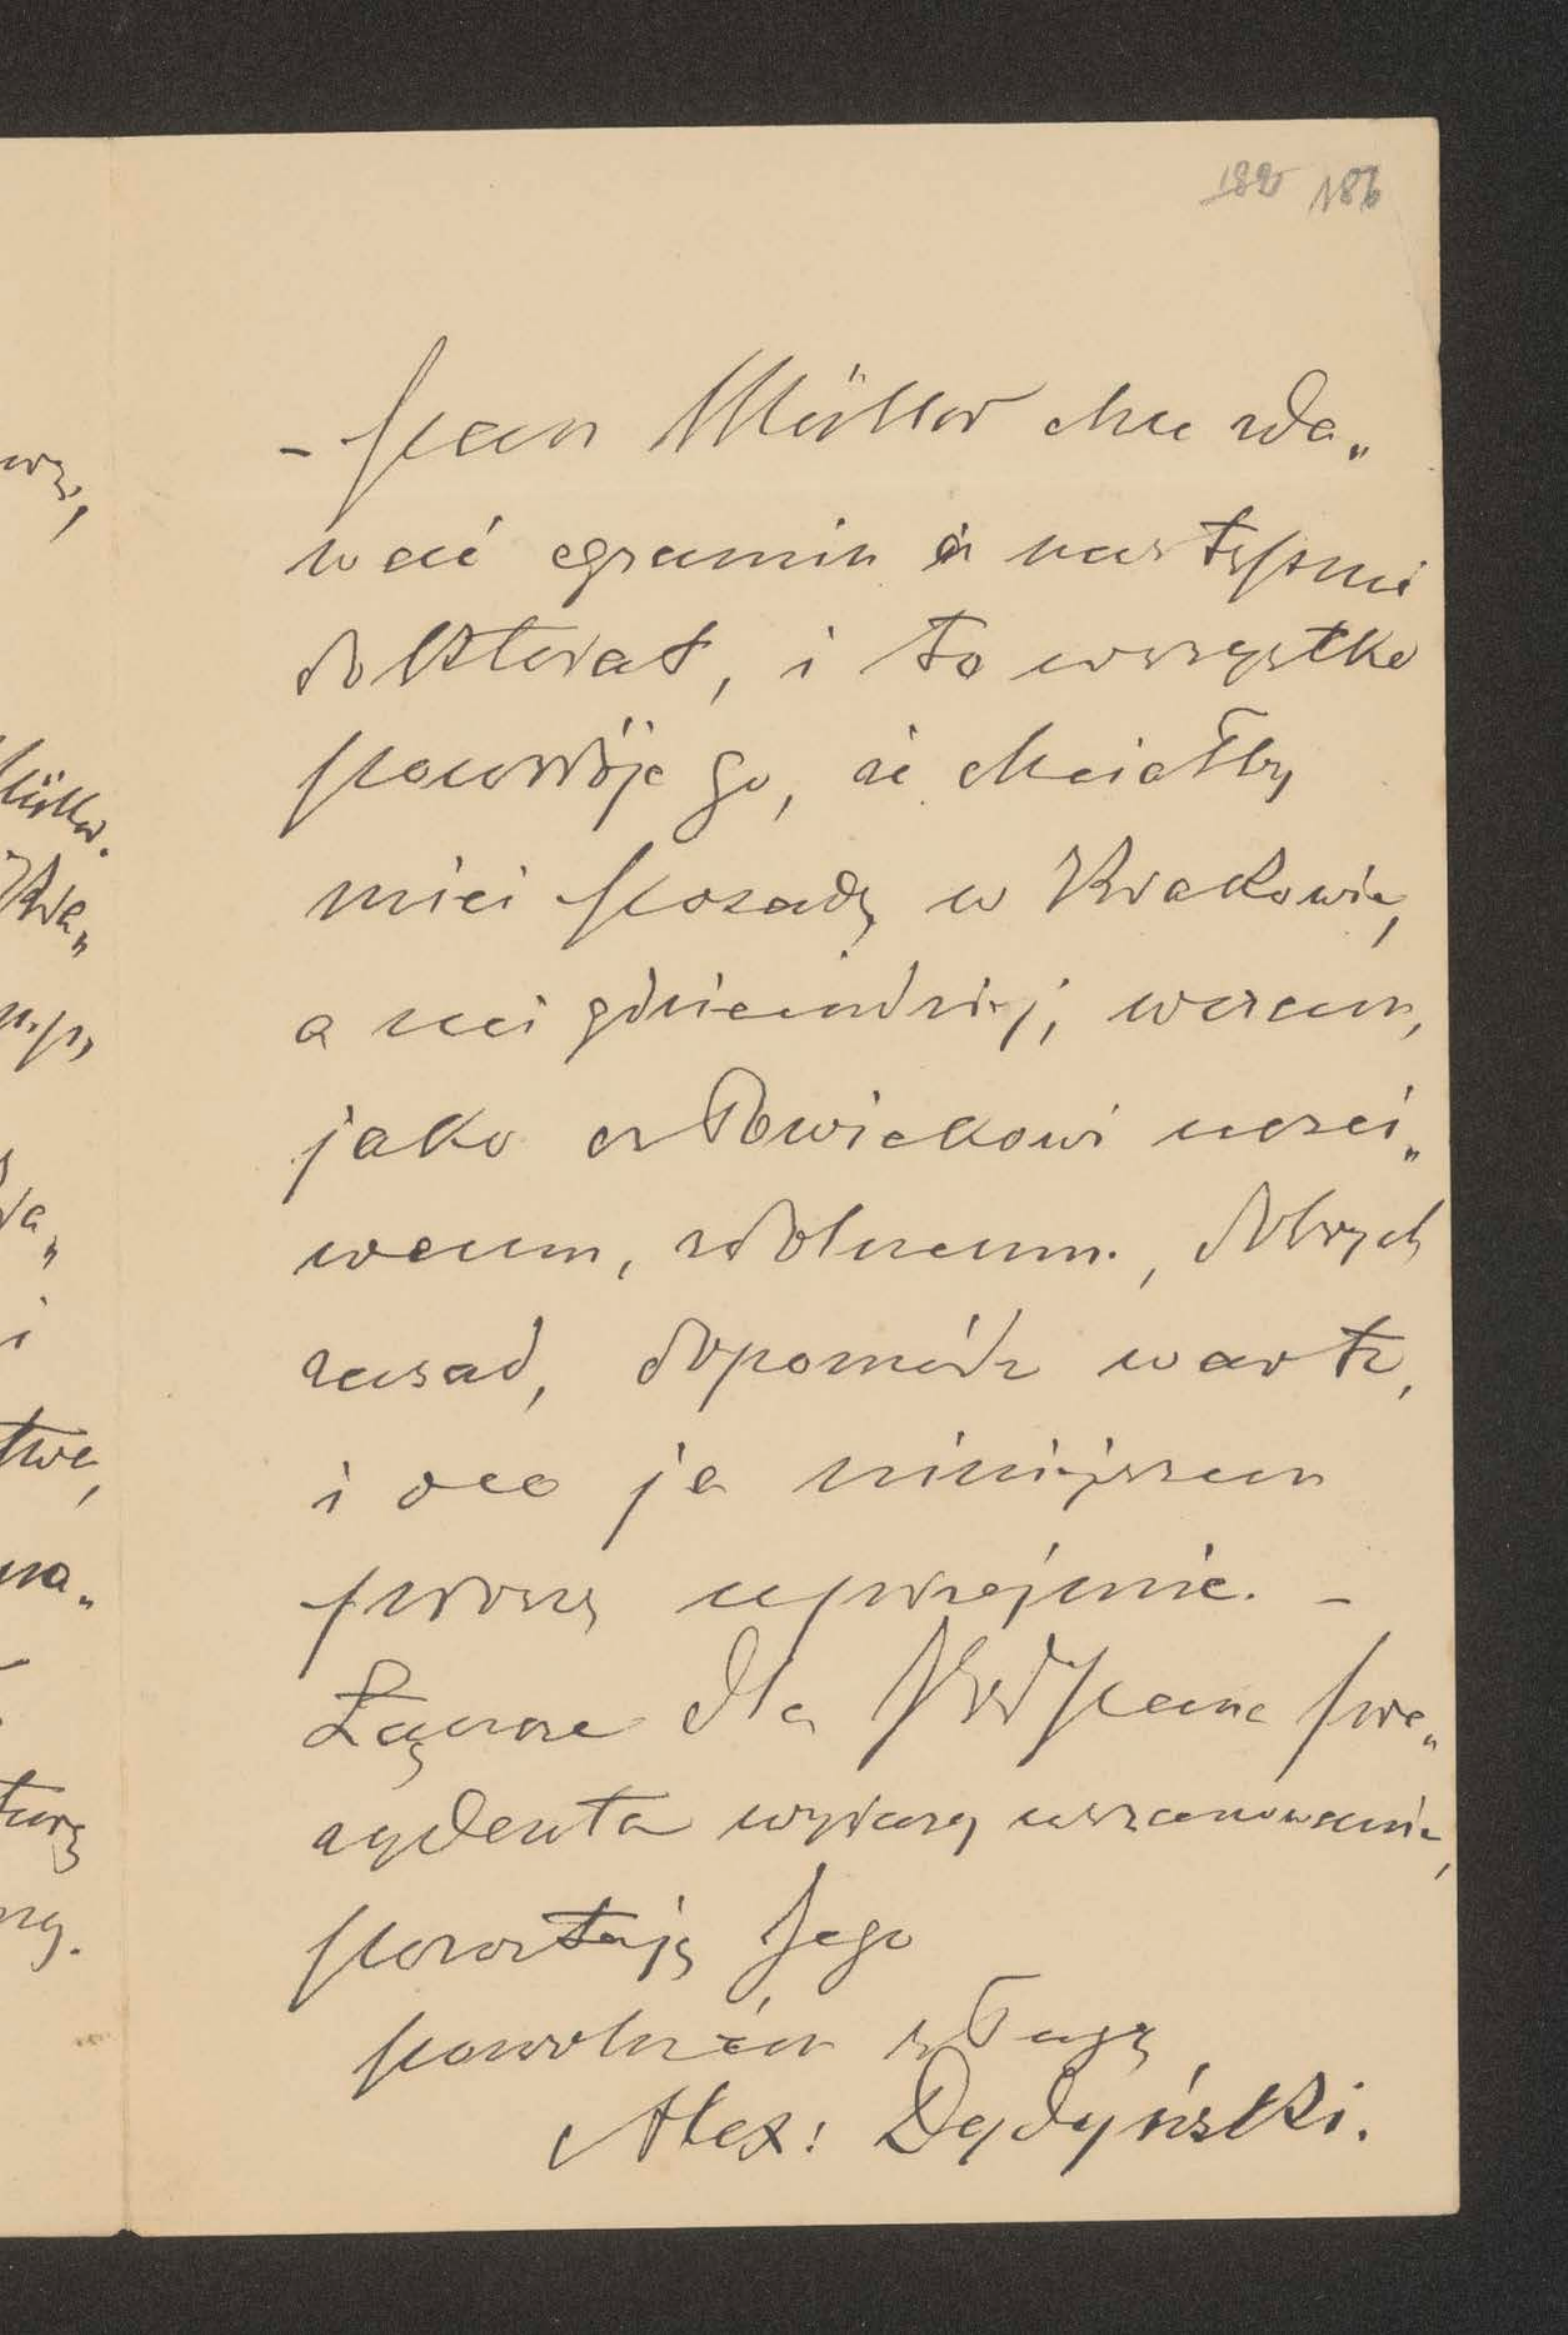 182 186
- Pan Müller chce zda„
wać egzamin i następnie
doktorat, i to wszystko
powoduje go, że chciałby
mieć posadę w Krakowie,
a nie gdzieindziej; wszem,
jako człowiekowi uczci„
wemu, zdolnemu, dobrych
zasad, dopomódz warto,
i oto ja niniejszem
proszę uprzejmie. -
Łączne dla JWPana Pre„
zydenta wyrazy uszanowania,
pozostaję Jego
powolnem sługą
Alex: Dędyński.